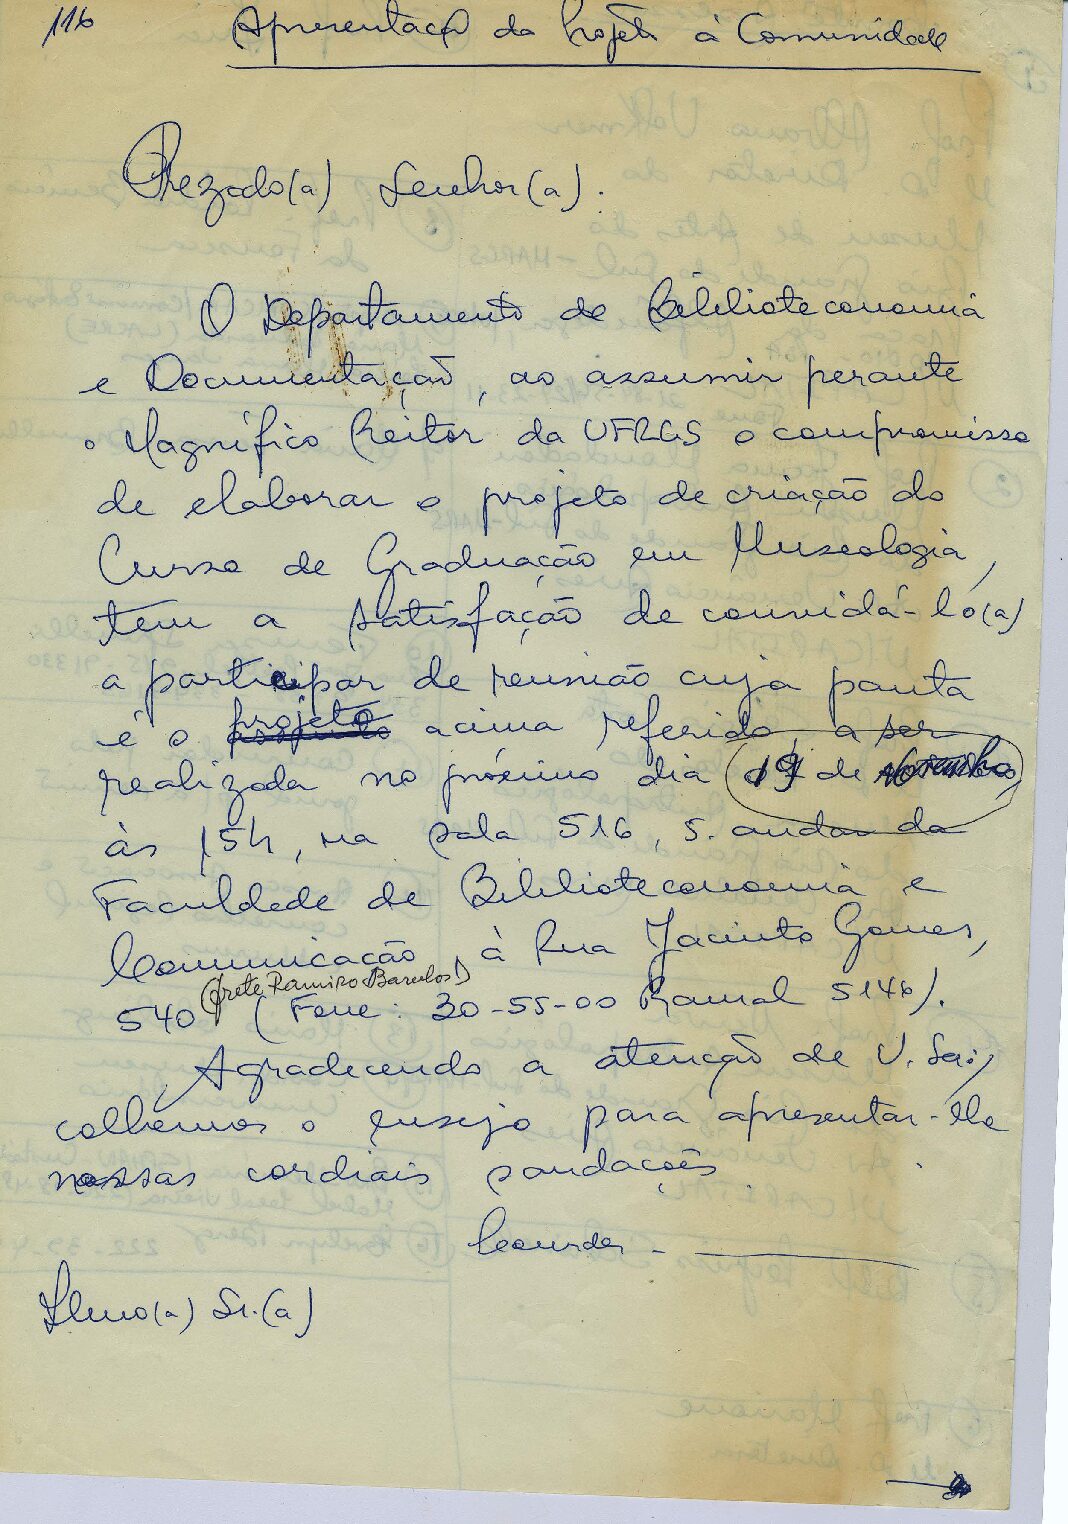 116
Apresentação do Projeto à Comunidade
Prezado(a) Senhor(a).
O Departamento de Biblioteconomia
e Documentação, ao assumir perante
o Magnífico Reitor da UFRGS o compromisso
de elaborar o projeto de criação do
Curso de Graduação em Museologia,
tem a satisfação de convidá-lo(a)
a participar de reunião cuja pauta
é o projeto acima referido, a ser
realizada no próximo dia 19 de novembro
às 15h, na sala 516, 5. andar da
Faculdade de Biblioteconomia e
Comunicação, à Rua Jacinto Gomes,
540 (Fone: 30-55-00 Ramal 5146).
(frete Ramiro Barcelos)
Agradecendo a atenção de V. Sa.,
colhemos o ensejo para apresentar-lhe
nossas cordiais saudações
Ilmo(a) Sr.(a)